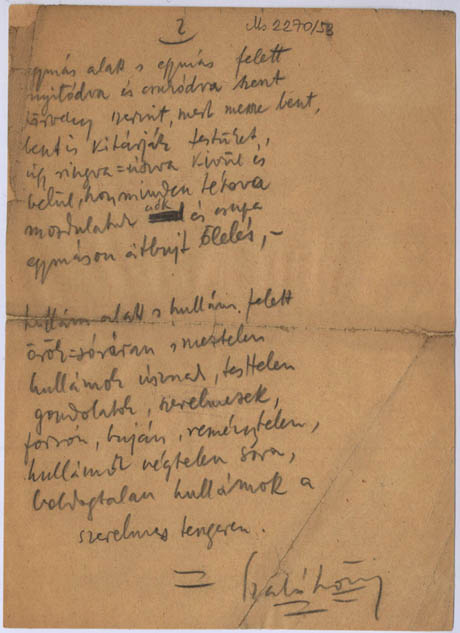 2
Ms 2270/53
egymás alatt s egymás felett
nyitódva és csukódva szent
törvény szerint, mert messze bent,
bent is kitárják testüket,
úgy ringva=úszva kívül és
belül, hol minden tétova
mozdulatuk csók és csupa
egymáson átbújt ölelés, –
hullám alatt s hullám felett
örök=sóváran s meztelen
hullámok úsznak, testtelen
gondolatok, szerelmesek,
forrón, buján, reménytelen,
hullámok végtelen sóra,
boldogtalan hullámok a
szerelmes tengeren.